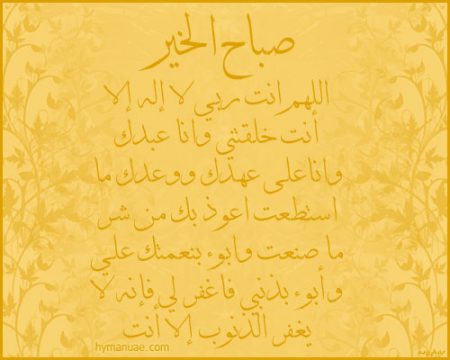 صباح الخير
اللهم انت ربي لا إله إلا
أنت خلقتني وانا عبدك
وانا على عهدك ووعدك ما
استطعت اعوذ بك من شر
ما صنعت وابوء بنعمتك علي
وأبوء بذنبي فاغفر لي فإنه لا
يغفر الذنوب إلا أنت
hymanuae.com